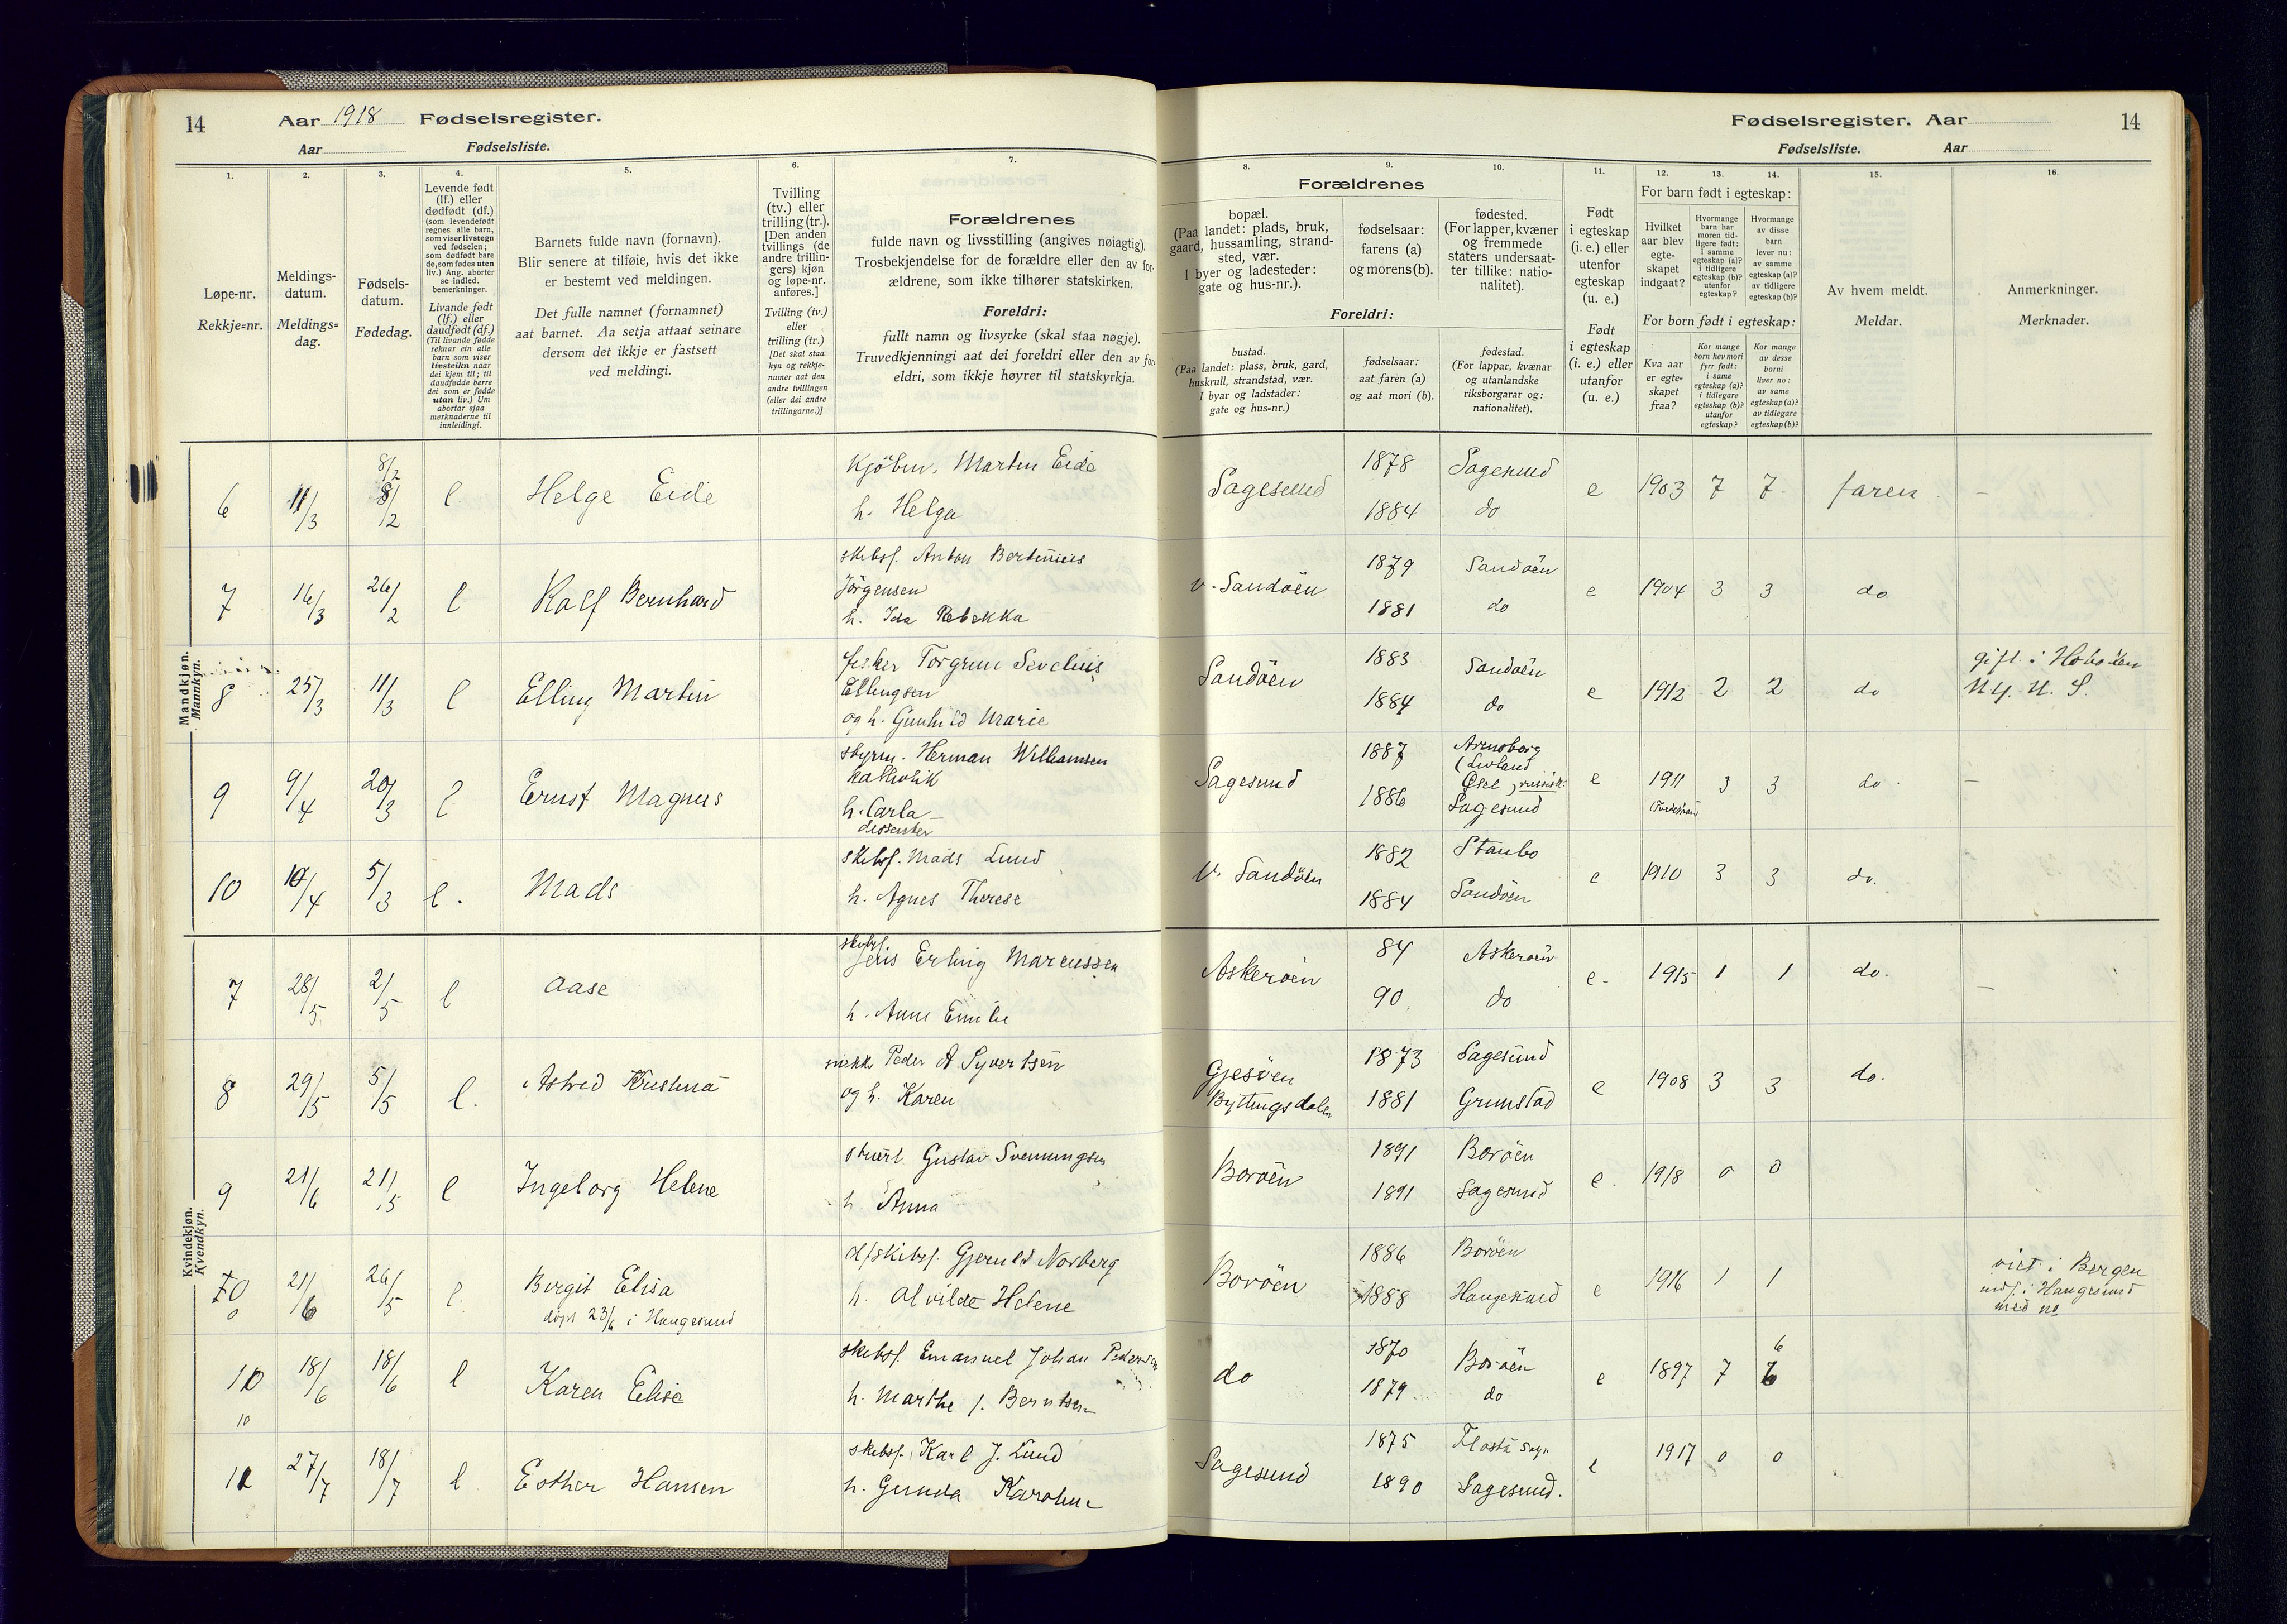 14
Aar 1918 Fødselsregister.
Aar Fødselsliste.
Fødselsregister. Aar
14
Fødselsliste. Aar
1.
2.
3.
4.
5.
6.
7.
8.
9.
10.
11.
12.
13.
14.
15.
16.
Løpe-nr.
Rekkje=nr.
Meldings-
datum.
Meldings=
dag.
Fødsels-
datum.
Fødedag.
Levende født
(lf.) eller
dødfødt (df.)
(som levendefødt
regnes alle barn,
som viser livstegn
ved fødselen;
som dødfødt bare
de, som fødes uten
liv.) Ang. aborter
se indled.
bemerkninger.
Livande født
(lf.) eller
daudfødt (df.)
(Til livande fødde
reknar ein alle
barn som viser
livsteikn naar
dei kjem til; til
daudfødde berre
dei som er fødde
utan liv.) Um
abortar sjaa
merknaderne til
innleidingi.
Barnets fulde navn (fornavn).
Blir senere at tilføie, hvis det ikke
er bestemt ved meldingen.
Det fulle namnet (fornamnet)
aat barnet. Aa setja attaat seinare
dersom det ikkje er fastsett
ved meldingi.
Tvilling
(tv.) eller
trilling (tr.).
[Den anden
tvillings (de
andre trillin-
gers) kjøn
og løpe-nr.
anføres.]
Tvilling (tv.)
eller
trilling (tr.)
[Det skal staa
kyn og rekkje-
numer aat den
andre tvillingen
(eller dei andre
trillingarne.)]
Forældrenes
fulde navn og livsstilling (angives nøiagtig).
Trosbekjendelse for de forældre eller den av for-
ældrene, som ikke tilhører statskirken.
Foreldri:
fullt namn og livsyrke (skal staa nøgje).
Truvedkjenningi aat dei foreldri eller den av for-
eldri, som ikkje høyrer til statskyrkja.
Forældrenes
bopæl.
(Paa landet: plads, bruk,
gaard, hussamling, strand-
sted, vær.
I byer og ladesteder:
gate og hus-nr.).
fødselsaar:
farens (a)
og morens (b).
fødested.
(For lapper, kvæner
og fremmede
staters undersaat-
ter tillike: natio-
nalitet).
Foreldri:
bustad.
(Paa landet: plass, bruk, gard,
huskrull, strandstad, vær.
I byar og ladstader:
gate og hus=nr.)
fødselsaar:
aat faren (a)
og aat mori (b).
fødestad.
(For lappar, kvænar
og utanlandske
riksborgarar og:
nationalitet).
Født
i egteskap
(i. e.) eller
utenfor
egteskap
(u. e.)
Født
i egteskap
(i. e.) eller
utanfor
(u. e.)
For barn født i egteskap:
Hvilket
aar blev
egte-
skapet
indgaat?
Hvormange
barn har
moren tid-
ligere født:
i samme
egteskap (a)?
i tidligere
egteskap (b)?
utenfor
egteskap?
Hvormange
av disse
barn
lever nu:
av samme
egteskap (a)?
av tidligere
egteskap (b)?
For born født i egteskap:
Kva aar
er egte=
skapet
fraa?
Kor mange
born hev mori
fyrr født:
i same
egteskap (a)?
i tidlegare
egteskap (b)?
utanfor
egteskap?
Kor mange
av desse
borni
liver no:
av same
egteskap (a)?
av tidlegare
egteskap (b)?
Av hvem meldt.
Meldar.
Anmerkninger.
Merknader.
Mandkjøn.
Mannkyn.
6 11/3 8/2 8/2 l. Helge Eide Kjöbm. Martin Eide h. Helga Sagesund 1878 1884 Sagesund do e 1903 7 7 faren —
7 16/3 26/2 l Rolf Bernhard skibsf. Anton Bertinius Jörgensen h. Ida Rebekka v. Sandöen 1879 1881 Sandöen do e 1904 3 3 do
8 25/3 11/3 l Elling Martin fisker Torgrim Sevelius Ellingsen og h. Gunhild Marie Sandöen 1883 1884 Sandöen do e 1912 2 2 do gift i N. Y. U. S.
9 9/4 20/3 l Ernst Magnus styrm. Herman Williamsen katholik h. Carla dissenter Sagesund 1887 1886 Arensborg (Livland Ösel, russisk Sagesund e 1911 3 3 do —
10 10/4 5/3 l. Mads skibsf. Mads Lund h. Agnes Therese v. Sandöen 1882 1884 Staubo Sandöen e 1910 3 3 do.
Kvindekjøn.
Kvendkyn.
7 28/5 2/5 l Aase skibsf. Jens Erling Marcussen h. Anne Emilie Askeröen 84 90 Askeröen do e. 1915 1 1 do. —
8 29/5 5/5 l. Astrid Kristina Peder A Syvertsen og h. Karen Gjesöen Byttingsdalen 1873 1881 Sagesund Grimstad e 1908 3 3 do.
9 21/6 21/5 l Ingeborg Helene Gustav Svenningsen h Anna Boröen 1891 1891 Boröen Sagesund e. 1918 0 0
10 21/6 26/5 l. Birgit Elisa döpt 23/6 i Haugesund skibsf. Gjerulf Norberg h. Alvilde Helene Boröen 1886 1888 Boröen Haugesund e 1916 1 1 viet i Bergen indf. i Haugesund med no
10 18/6 18/6 l Karen Elise skibsf. Emanuel Johan Pedersen h. Marthe f. Berntsen do 1870 1879 Boröen do e 1897 7 6
10
11 27/7 18/7 l Esther Hansen skibsf. Karl J. Lund h. Gunda Karoline Sagesund 1875 1890 Flosta Sogn Sagesund. e 1917 0 0